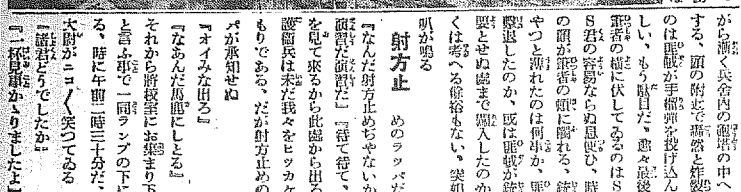 がら漸く兵舎內の砲塔の中へ
する、頭の附近で轟然と炸裂
のは匪賊が手榴彈を投げ込ん
しい、もう駄目だ。愈々最後
筆者の橫に伏してゐるのはS
S君の容易ならぬ息使ひ、時
の頭が筆者の頰に觸れる、銃
やつと薄れたのは何串か、匪
擊退したのか、或は匪賊が銃
要とせぬ處まで闖入したのか
くは考へる餘裕もない。突如
叭が鳴る
射方止 めのラッパだ
『なんだ射方止めぢやないか
演習だ演習だ』『待て待て、
を見て來るから此處から出る
護衞兵は未だ我々をヒッカケ
もりである、だが射方止めの
パが承知せぬ
『オイみな出ろ』
『なあんだ馬鹿にしとる』
それから將校室にお集まり下
と言ふ事で一同ランプの下に
る、時に午前二時三十分だ、
大尉がニコ〳〵笑つてゐる
『諸君どうでしたか』
『一杯見事かゝりましたよ』